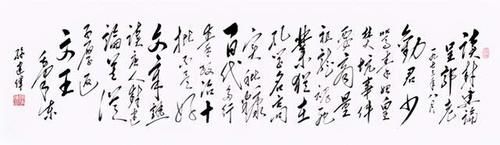 读封建論
呈郭老
一九七三年八月
勸君少
骂秦始皇
焚坑事件
要商量
祖龍魂死
業猶在
孔学名高
实秕糠
百代多行
秦政治十
批不是好
文章熟
读唐人封建
論莫從
子厚返
文王
毛泽东